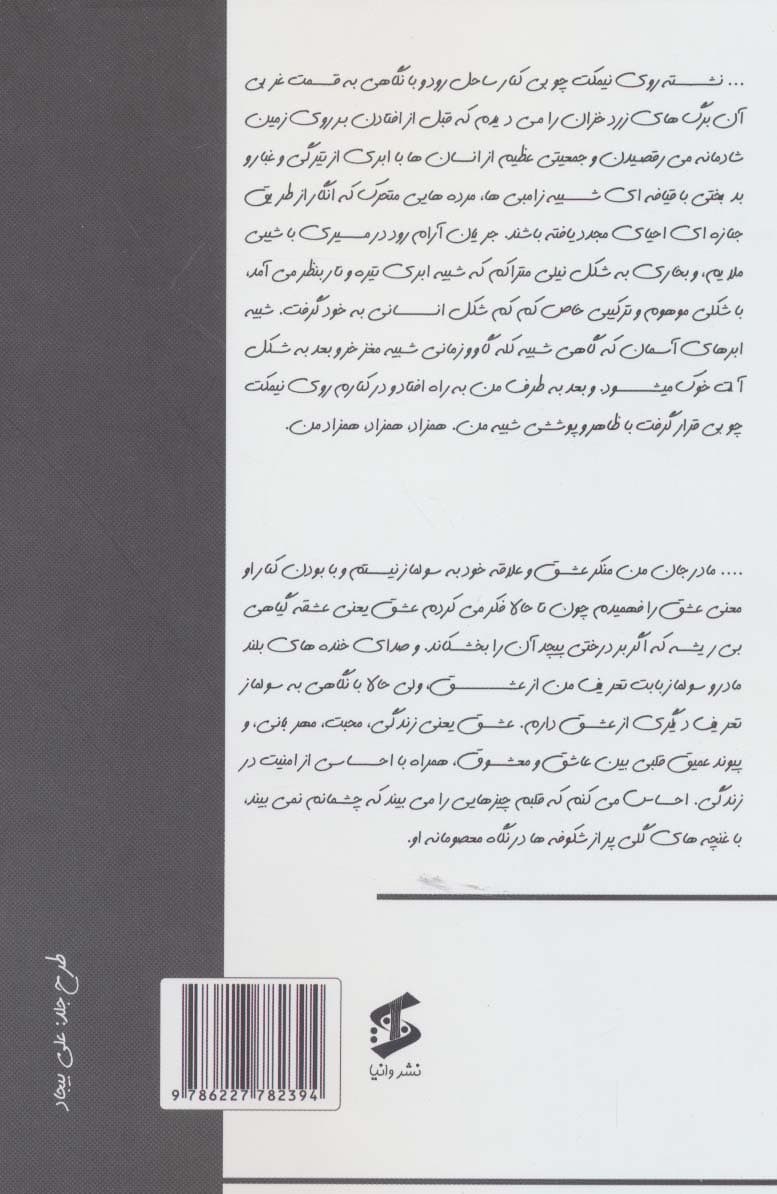 ... نشسته روی نیمکت چوبی کنار ساحل رود و با نگاهی به قسمت غربی
آن برگ های زرد خزان را می دیدم که قبل از افتادن بر روی زمین
شادمانه می رقصیدن و جمعیتی عظیم از انسان ها با ابری از تیرگی و غبار و
بدبختی با قیافه ای شبیه زامبی ها، مرده هایی متحرک که انگار از طریق
جنازه ای احیای مجدد یافته باشند. جریان آرام رود در مسیری با شیبی
ملایم، و بخاری به شکل نیلی متراکم که شبیه ابری تیره و تار بنظر می آمد،
با شکلی موهوم و ترکیبی خاص کم کم شکل انسانی به خود گرفت. شبیه
ابرهای آسمان که گاهی شبیه کله گاو و زمانی شبیه مغز خر و بعد به شکل
آلت خوک میشود. و بعد به طرف من به راه افتاد و در کنارم روی نیمکت
چوبی قرار گرفت با ظاهر و پوششی شبیه من. همزاد، همزاد، همزاد من.
.... مادر جان من منکر عشق و علاقه خود به سولماز نیستم و با بودن کنار او
معنی عشق را فهمیدم چون تا حالا فکر می کردم عشق یعنی عشقه گیاهی
بی ریشه که اگر بر درختی پیچد آن را بخشکاند. و صدای خنده های بلند
مادر و سولماز بابت تعریف من از عشق، ولی حالا با نگاهی به سولماز
تعریف دیگری از عشق دارم. عشق یعنی زندگی، محبت، مهربانی، و
پیوند عمیق قلبی بین عاشق و معشوق، همراه با احساسی از امنیت در
زندگی. احساس می کنم که قلبم چیزهایی را می بیند که چشمانم نمی بیند،
با غنچه های گلی پر از شکوفه ها در نگاه معصومانه او.
طرح جلد: علی بیجاد
نشر وانیا
9 786227 782394